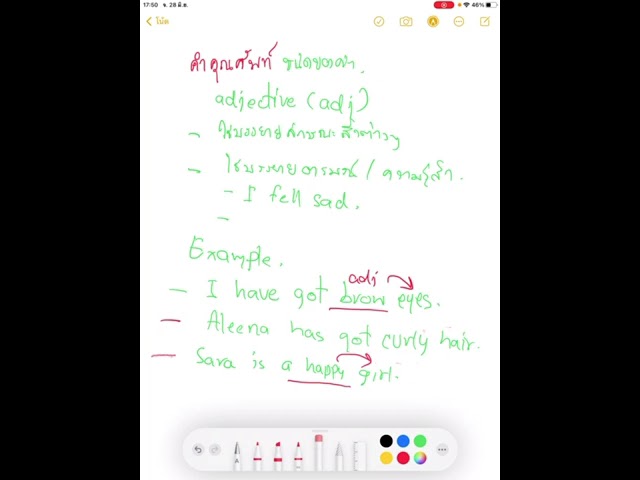 17:50 จ. 28 มิ.ย. 46%
โน้ต
คำคุณศัพท์ ชนิดของคำ.
adjective (adj)
- ใช้บรรยายลักษณะสิ่งต่างๆ
- ใช้บรรยายอารมณ์ / ความรู้สึก.
- I fell sad.
-
Example.
adj
- I have got brow eyes.
- Aleena has got curly hair.
- Sara is a happy girl.